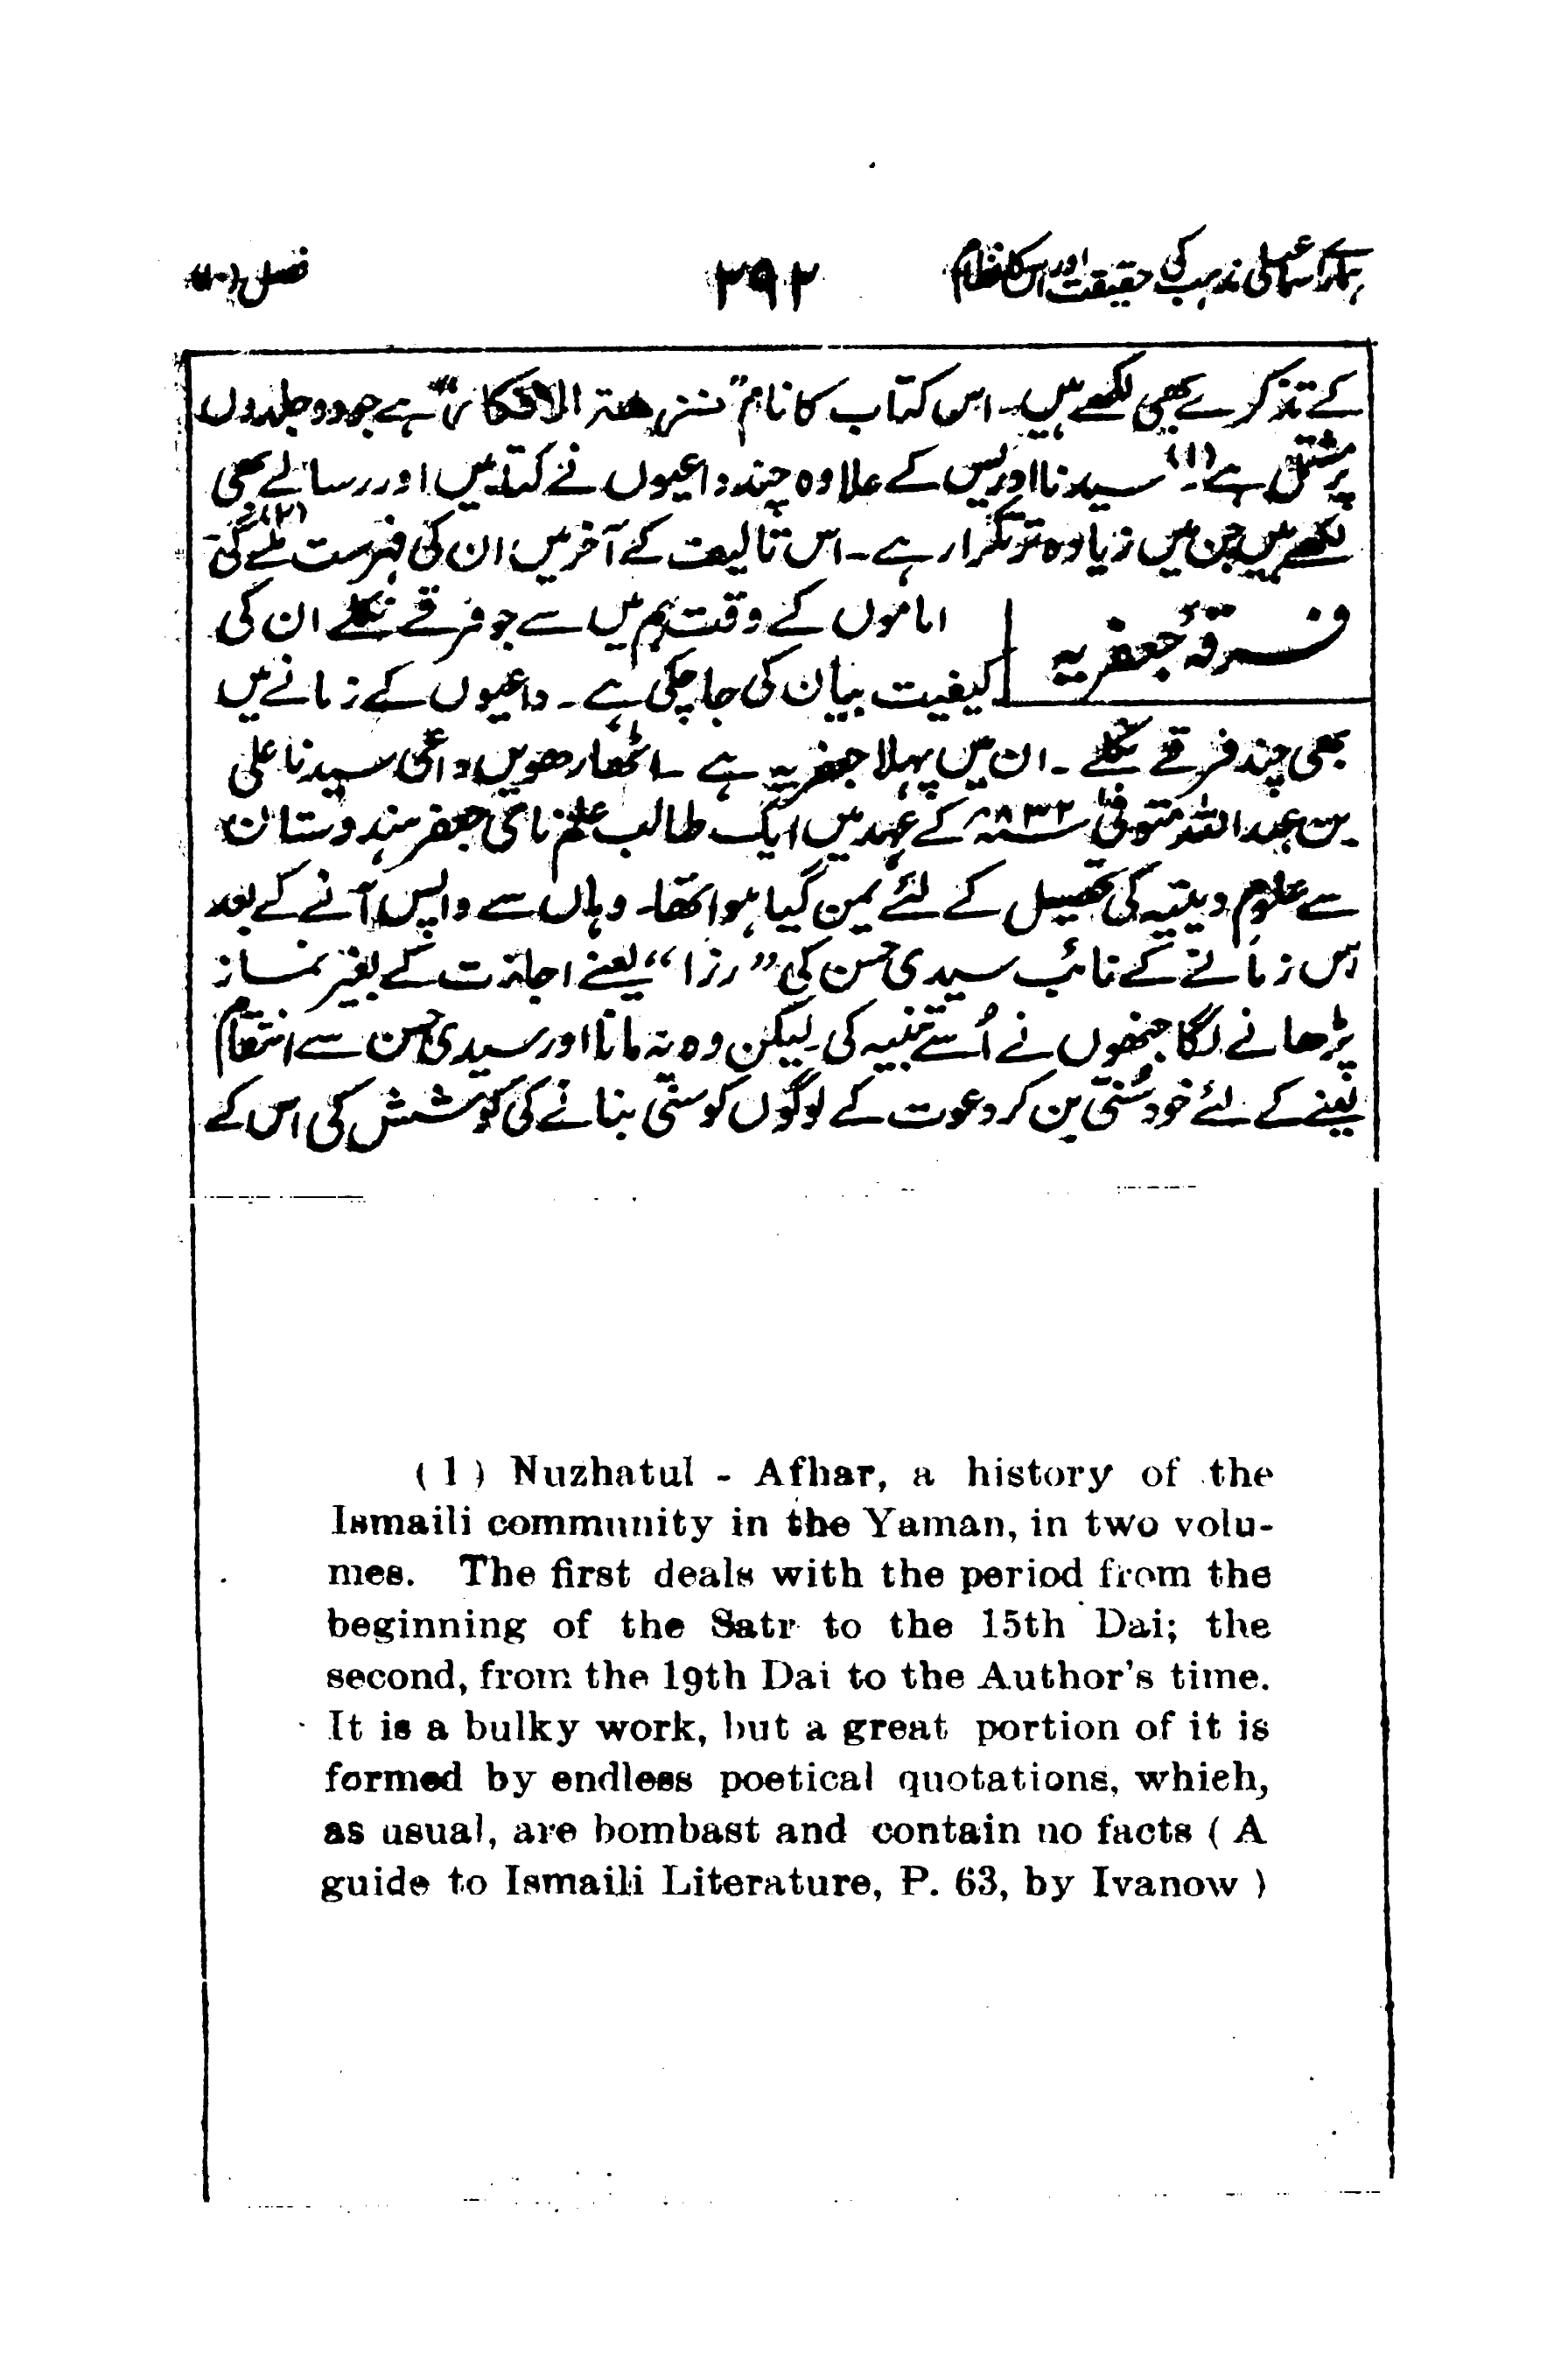 ہمارے اسماعیلی مذہب کی حقیقت اور اس کا نظام ۳۹۲ فصل (۲۰)
کے تذکرے بھی لکھے ہیں۔ اس کتاب کا نام ”نزھتہ الافکار“ ہے جو دو جلدوں
پر مشتمل ہے (۱)۔ سیدنا ادریس کے علاوہ چند داعیوں نے کتابیں اور رسالے بھی
لکھے ہیں جن میں زیادہ تر تکرار ہے۔ اس تالیف کے آخر میں ان کی فہرست ملے گی (۲)۔
فرقۂ جعفریہ
اماموں کے وقت ہم میں سے جو فرقے نکلے ان کی
کیفیت بیان کی جا چکی ہے۔ داعیوں کے زمانے میں
بھی چند فرقے نکلے۔ ان میں پہلا جعفریہ ہے۔ اٹھارھویں داعی سیدنا علی
بن عبداللہ متوفیٰ ۸۳۲ھ کے عہد میں ایک طالب علم نامی جعفر ہندوستان
سے علوم دینیہ کی تحصیل کے لئے یمن گیا ہوا تھا۔ وہاں سے واپس آنے کے بعد
اس زمانے کے نائب سیدی حسن کی ”رزا“ یعنے اجازت کے بغیر نماز
پڑھانے لگا جنھوں نے اُسے تنبیہ کی۔ لیکن وہ نہ مانا اور سیدی حسن سے انتقام
لینے کے لئے خود سُنّی بن کر دعوت کے لوگوں کو سنّی بنانے کی کوشش کی اس کے
(1) Nuzhatul - Afhar, a history of the
Ismaili community in the Yaman, in two volu-
mes. The first deals with the period from the
beginning of the Satr to the 15th Dai; the
second, from the 19th Dai to the Author's time.
It is a bulky work, but a great portion of it is
formed by endless poetical quotations, whieh,
as usual, are bombast and contain no facts ( A
guide to Ismaili Literature, P. 63, by Ivanow )